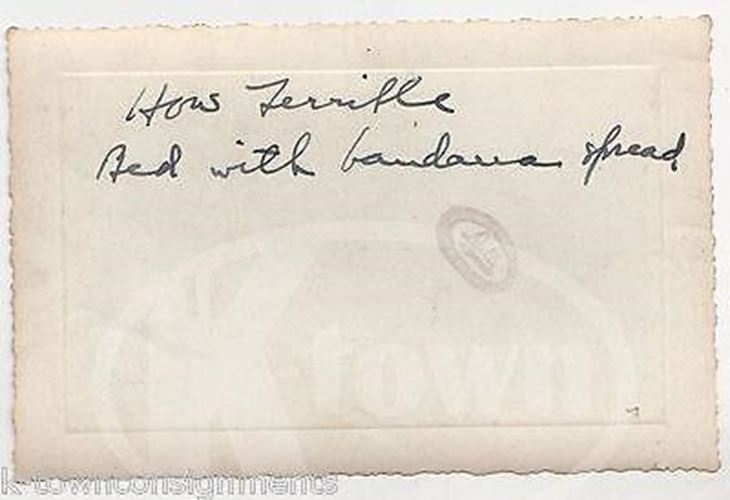 How Terrible
Bed with bandana spread
K-town
k-townconsignments